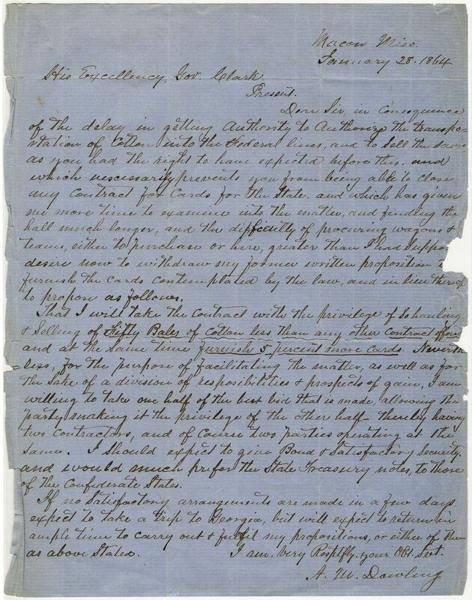 Macon Miss.
January 28. 1864
His Excellency, Gov. Clark
Present.
Dear Sir, in consequence
of the delay in getting Authority to Authorize the transpo
rtation of Cotton into the Federal lines, and to sell the same
as you had the right to have expected before this. and
which necessarily prevents you from being able to close
any Contract for Cards for the State, and which has given
me more time to examine into the matter, and finding the
hall much longer, and the difficulty of procuring wagons &
teams, either to purchase or hire, greater than I had suppo
desire now to withdraw my former written proposition
furnish the Cards contemplated by the law, and in lieu thereof
to propose as follows.
That I will take the Contract with the privilege of so hauling
& Selling of Fifty Bales of Cotton less than any other Contract
and at the same time furnish 5 percent more Cards. Neverthe
less, for the purpose of facilitating the matter, as well as for
the sake of a division of resposibilities & prospects of gain, I am
willing to take one half of the best bid that is made, allowing the
party making it the privilege of the other half thereby having
two Contractors, and of Course two parties operating at the
same. I should expect to give Bond & Satisfactory Security.
and would much prefer the State Treasury notes, to those
of the Confederate States.
If no Satisfactory arrangements are made in a few days
expect to take a trip to Georgia, but will expect to return in
ample time to carry out & fulfil my propositions, or either of them
as above Stated. I am, Very Respfly. your Obt. Svt.
A. M. Dowling